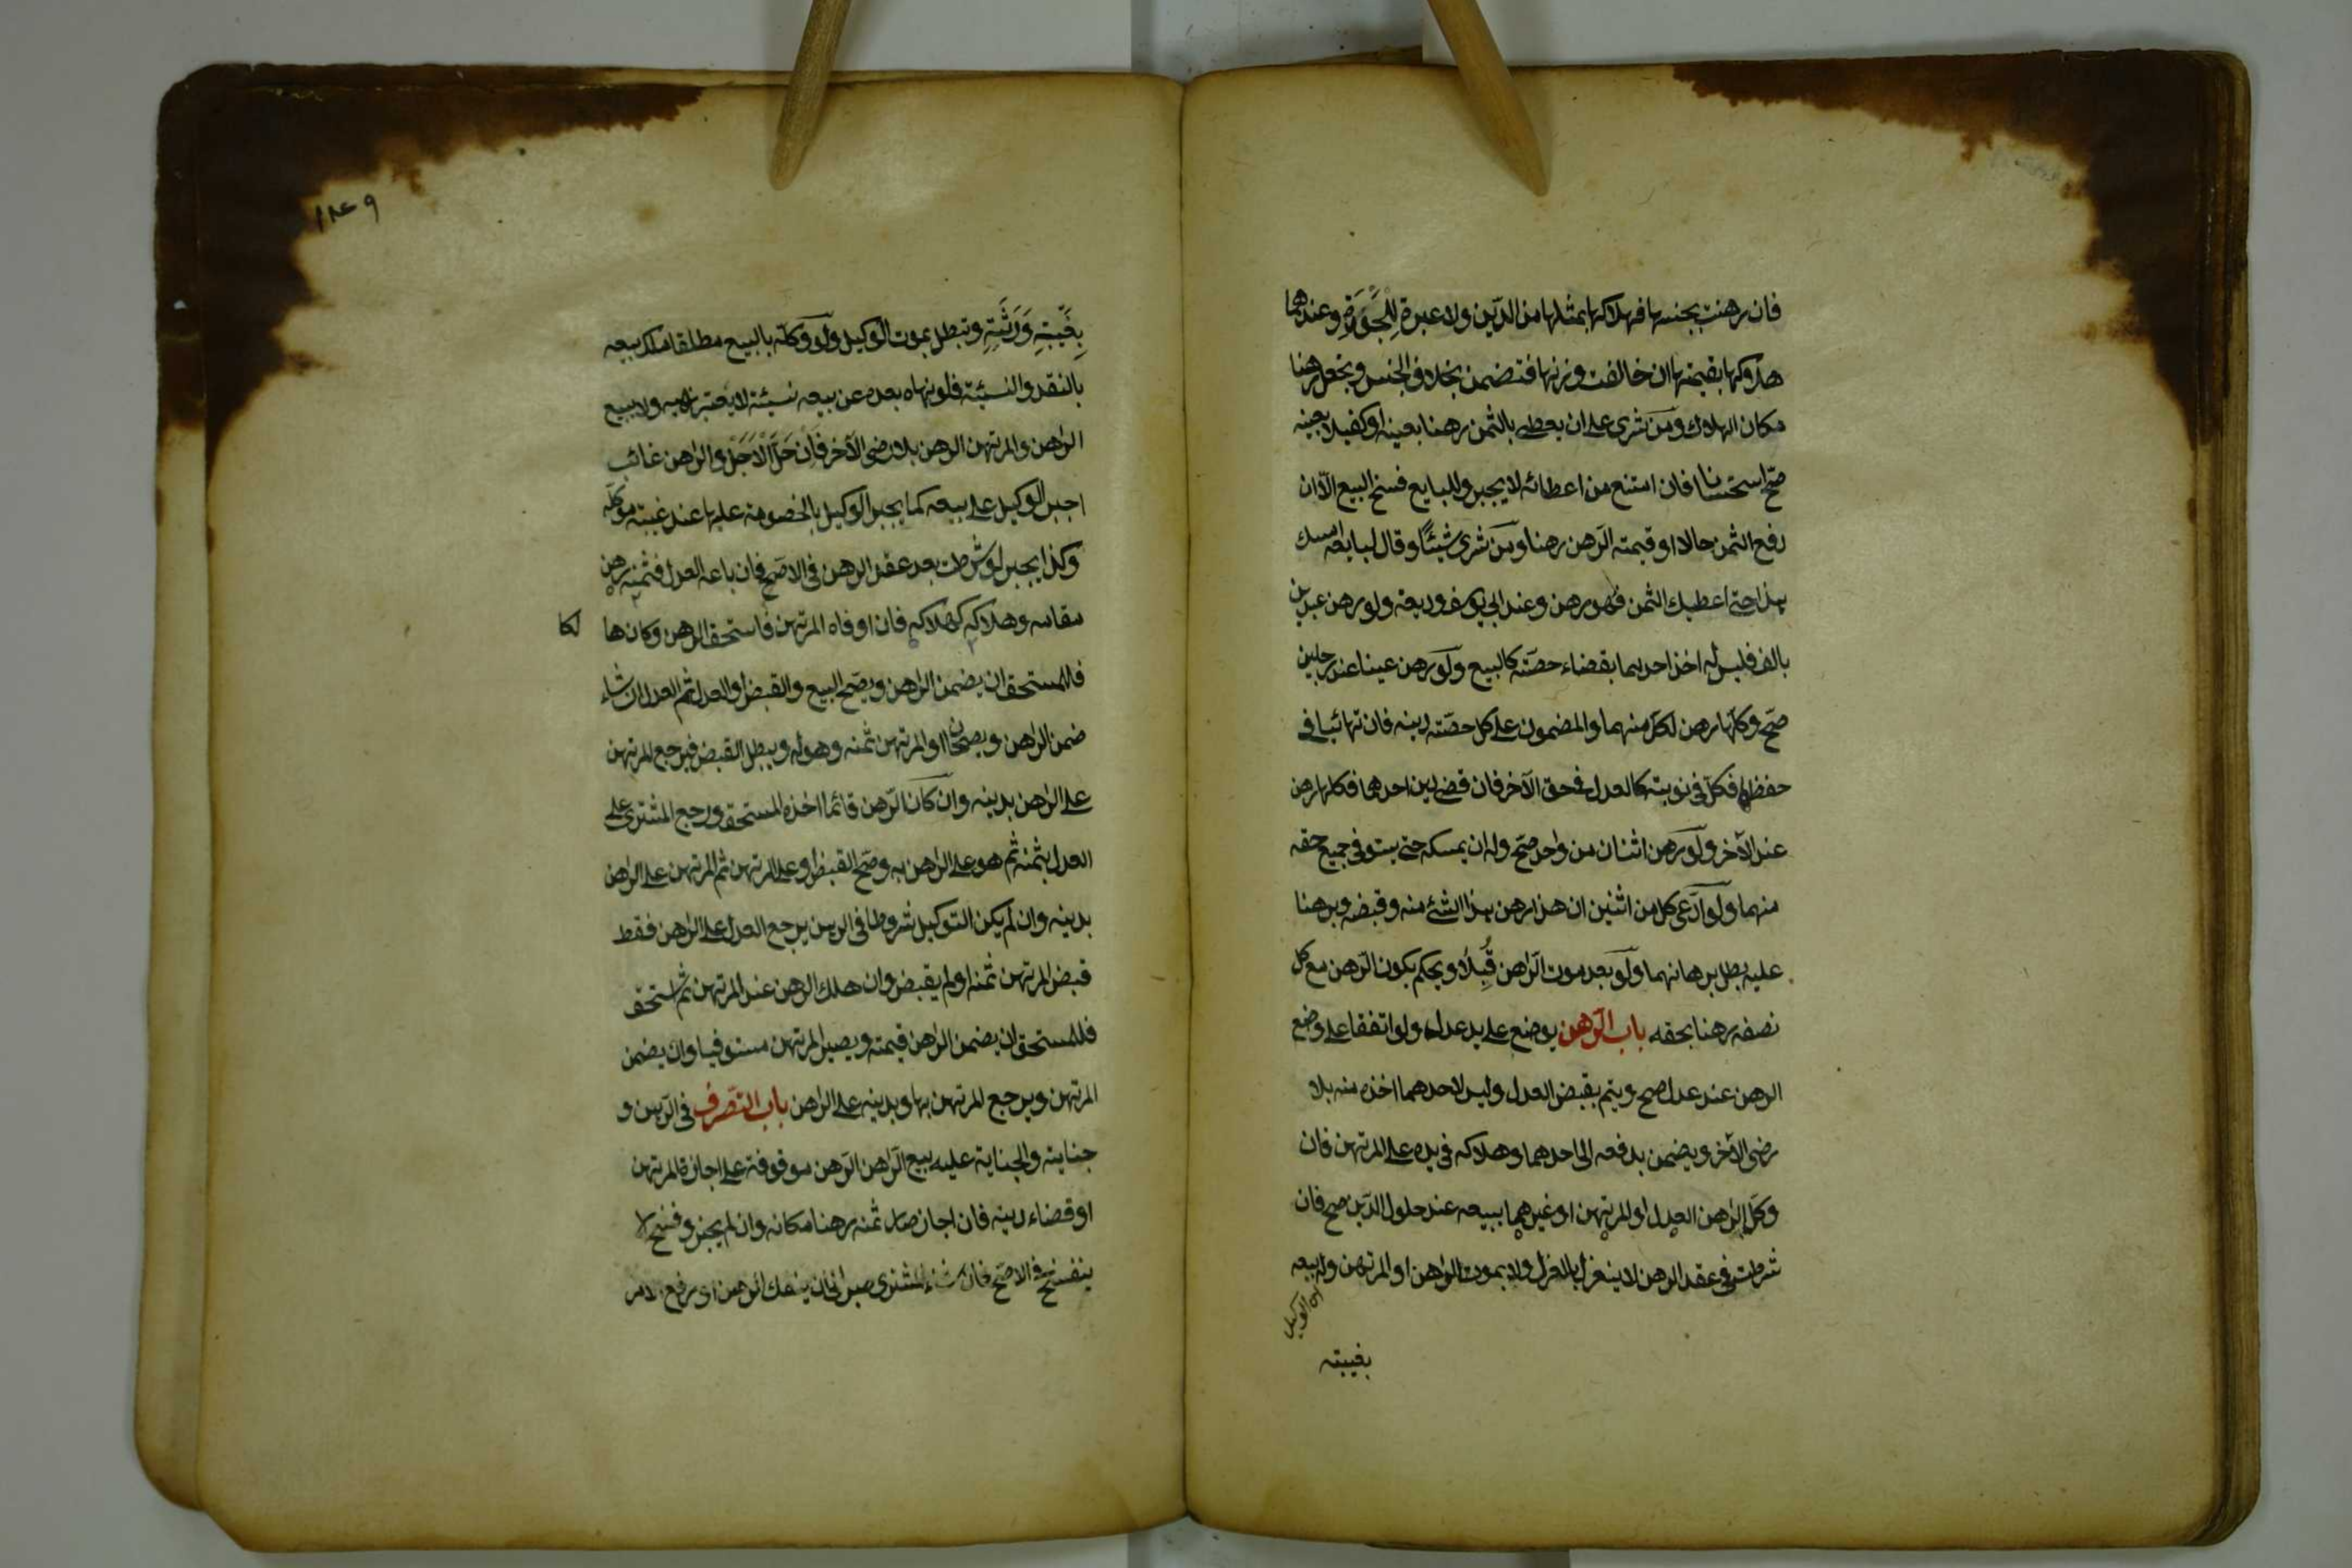 فان رهنت بجنسها فهلاكها بمثلها من الدّين ولا عبرة للجودة وعندهما
هلاكها بقيمتها ان خالفت وزنها فتضمن بخلاف الجنس وتجعل رهنا
مكان الهلاك ومن شرى على ان يعطى بالثمن رهنا بعينه او كفيلا بعينه
صحّ استحسانا فان امتنع من اعطائه لا يجبر وللبايع فسخ البيع الّا ان
رفع الثمن حالا او قيمته الرهن رهنا ومن شرى شيئًا وقال لبايعه امسك
هذا حتى اعطيك الثمن فهو رهن وعند ابي يوسف وديعة ولو رهن عبدين
بالف فليس له اخذ احديهما بقضاء حصّته كالبيع ولو رهن عينا عند رجلين
صحّ وكلّها رهن لكلّ منهما والمضمون على كل حصّته دينه فان تهائيا في
حفظها فكلّ في نوبته كالعدل في حق الآخر فان قضى دين احدهما فكلها رهن
عند الآخر ولو رهن اثنان من واحد صحّ وله ان يمسكه حتى يستوفي جميع حقه
منهما ولو ادّعى كل من اثنين ان هذا رهن هذا الشئ منه وقبضه وبرهنا
عليه بطل برهانهما ولو بعد موت الرّاهن قُبِلا ويحكم بكون الرّهن مع كل
نصفه رهنا بحقه باب الرّهن يوضع على يد عدل ولو اتفقا على وضع
الرهن عند عدل صح ويتم بقبض العدل وليس لاحدهما اخذه منه بلا
رضى الآخر ويضمن بدفعه الى احدهما وهلاكه في يده على المرتهن فان
وكّل الراهن العدل او المرتهن او غيرهما ببيعه عند حلول الدّين صح فان
شرطت في عقد الرهن لا ينعزل بالعزل ولا بموت الراهن او المرتهن وله بيعه
اى الوكيل
بغيبته
بِغَيبَتِهِ وَرَثَتِهِ وتبطل بموت الوكيل ولو وكّله بالبيع مطلقا ملك بيعه
بالنقد والنسيئة فلو نهاه بعده عن بيعه نسيئة لا يعتبر نهيه ولا يبيع
الراهن والمرتهن الرهن بلا رضى الآخر فَاِنْ حَلَّ الْاَجَل والراهن غائب
اجبر الوكيل على بيعه كما يجبر الوكيل بالخصومة عليها عند غيبته موكّله
وكذا يجبر لو شرطت بعد عقد الرهن في الاصحّ فان باعه العدل فثمنه رهن
مقامه وهلاكه كهلاكه فان اوفاه المرتهن فاستحق الرهن وكان ها لكا
فللمستحق ان يضمن الراهن ويصحّ البيع والقبض او العدل ثم العدل ان شاء
ضمن الراهن ويصحّان او المرتهن ثمنه وهو له ويبطل القبض فيرجع المرتهن
على الراهن بدينه وان كان الرّهن قائما اخذه المستحق ورجع المشترى على
العدل بثمنه ثم هو على الراهن به وصحّ القبض او على المرتهن ثم المرتهن على الراهن
بدينه وان لم يكن التوكيل شروطا في الرهن يرجع العدل على الراهن فقط
قبض المرتهن ثمنه او لم يقبض وان هلك الرهن عند المرتهن ثم استحق
فللمستحق ان يضمن الراهن قيمته ويصير المرتهن مستوفيا وان يضمن
المرتهن ويرجع المرتهن بها وبدينه على الراهن باب التصرف في الرّهن و
جنايته والجناية عليه بيع الرّاهن الرّهن موقوفة على اجازة المرتهن
او قضاء دينه فان اجاز صار ثمنه رهنا مكانه وان لم يجز وفسخ لا
ينفسخ في الاصحّ فان شاء المشترى صبر الى ان ينفك الرهن او يرفع الامر